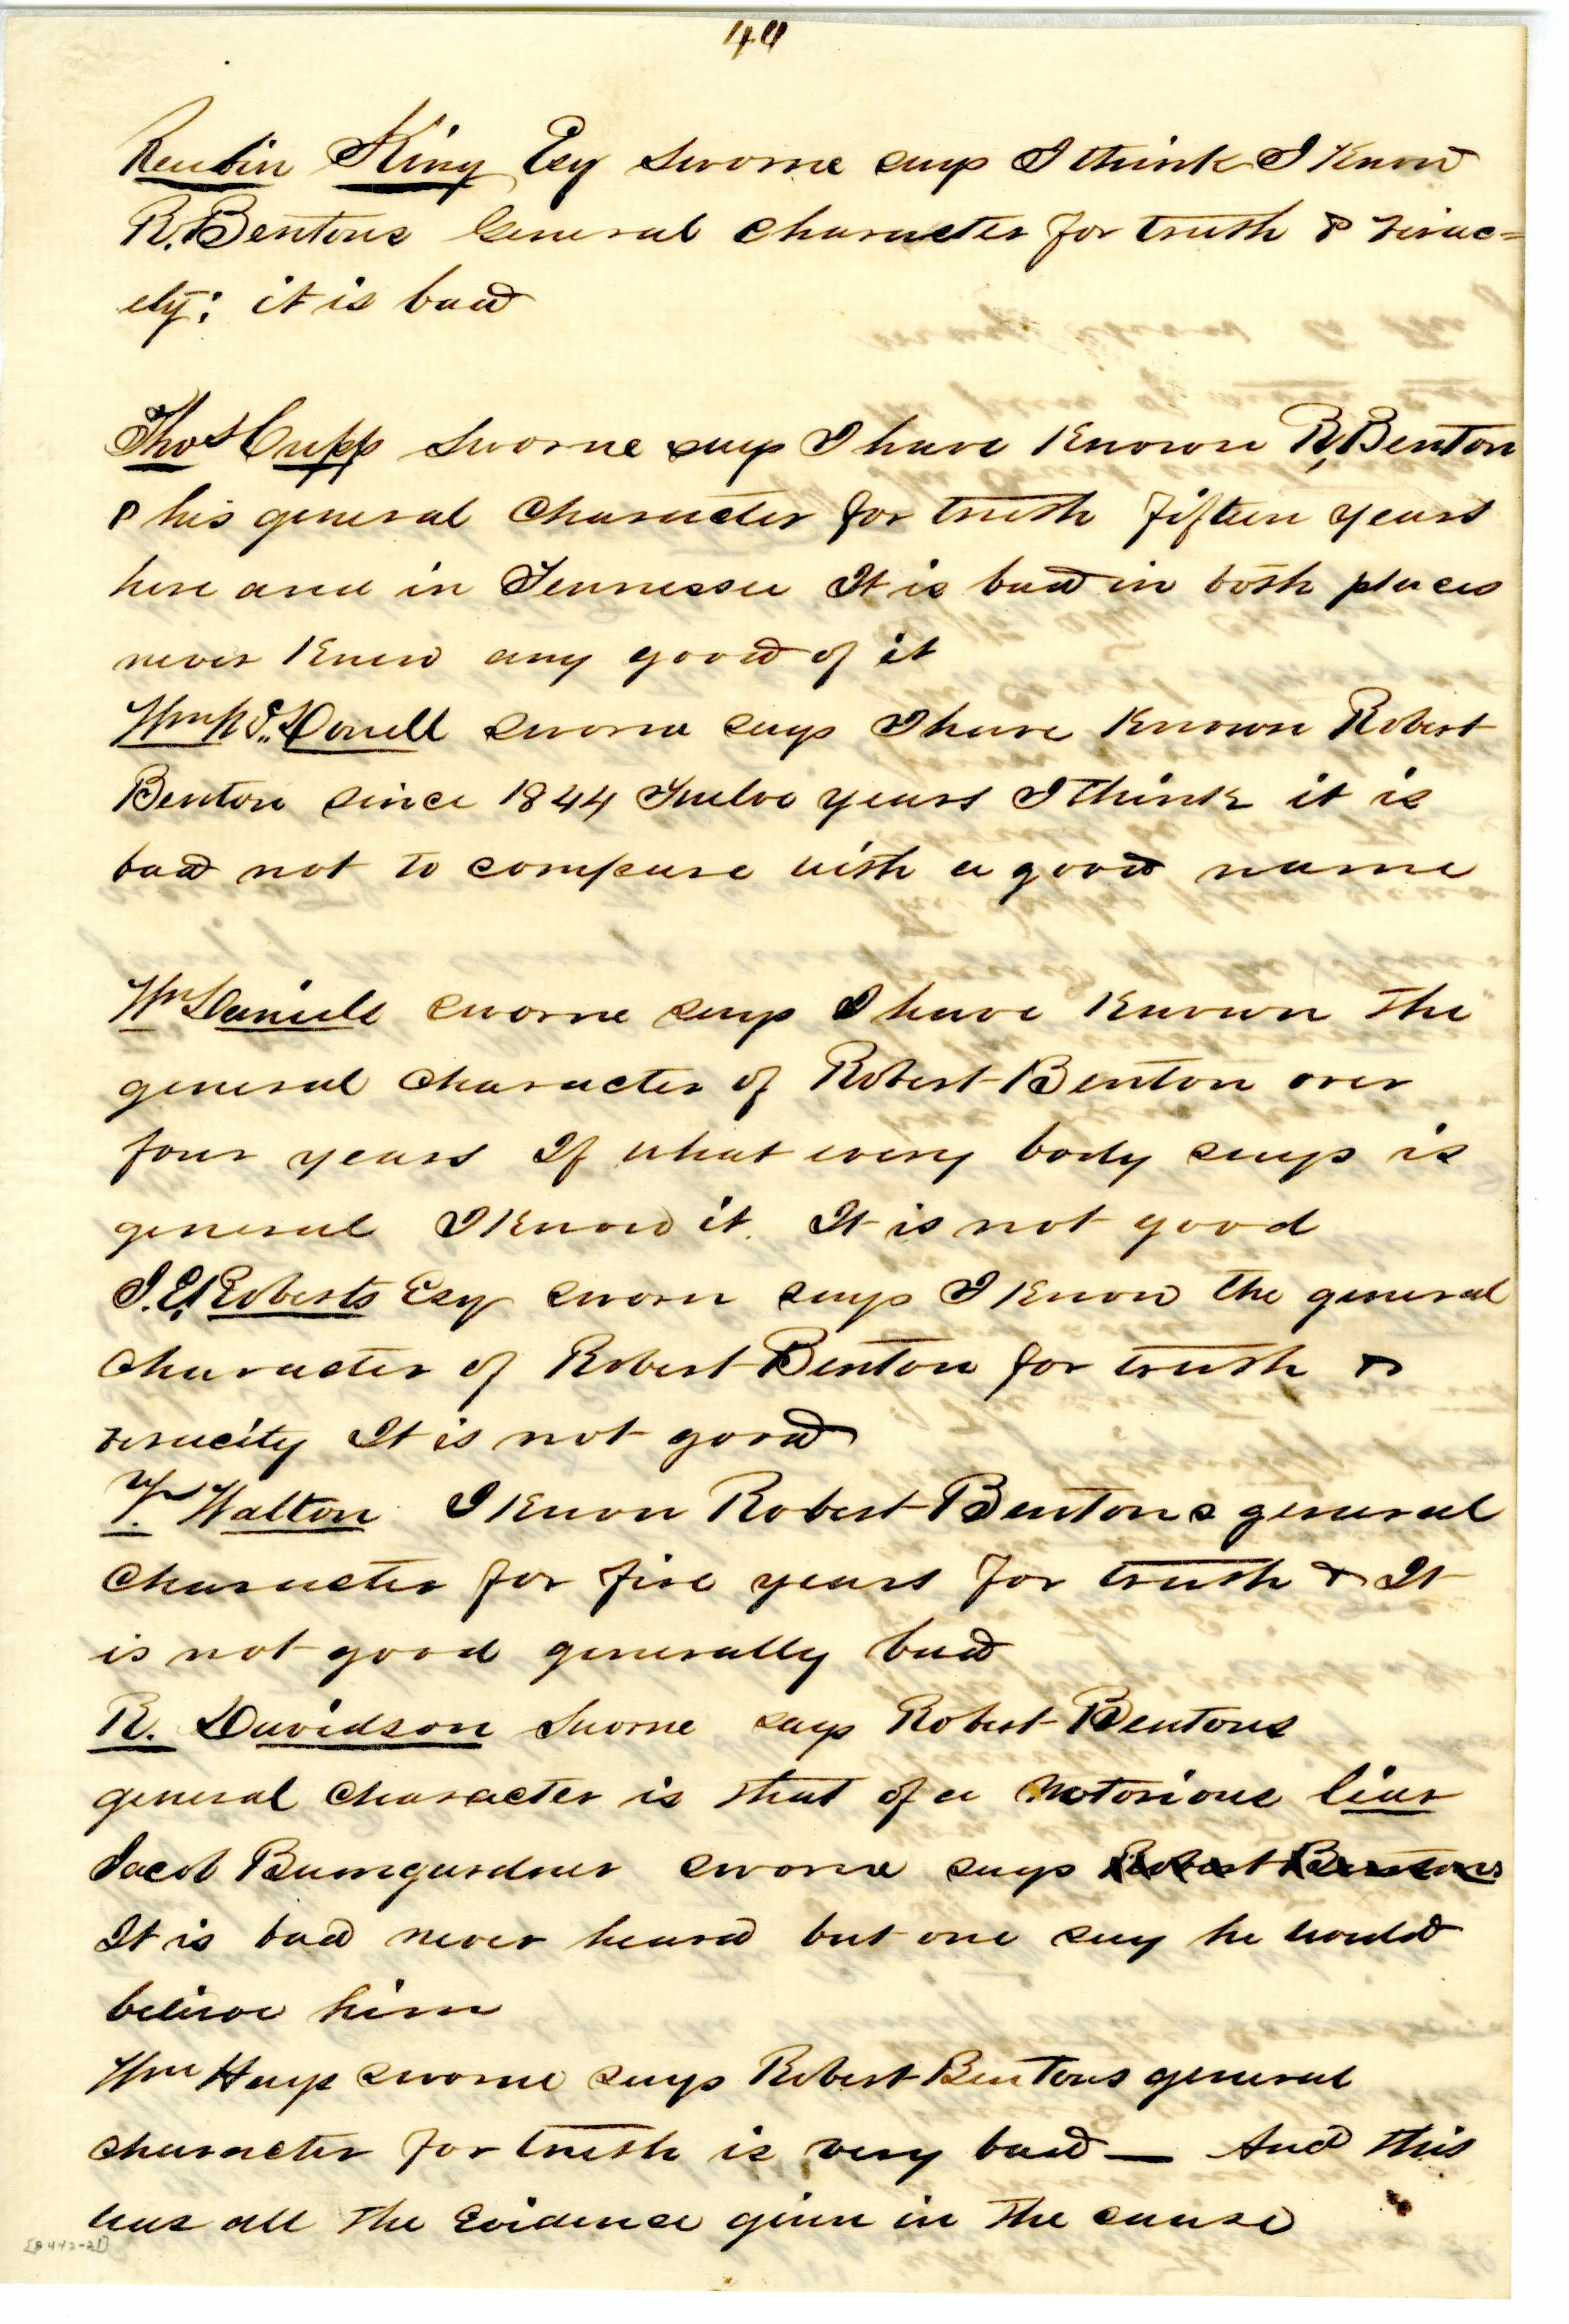 Reubin King Esq sworne says I think I Know
R. Bentons General character for truth & verac=
ety: it is bad
Thos Cupp sworne says I have Known R, Benton
& his general character for truth fifteen years
here and in Tennessee It is bad in both places
never Knew any good of it
Dowell sworne says I have Known Robert
Benton since 1844 Twelve years I think it is
bad not to compare with a good name
Wm Daniels sworne says I have Known the
general character of Robert Benton over
four years If what every body says is
general I Know it. It is not good
J. E. Roberts Esq sworn says I Know the general
character of Robert Benton for truth &
veracity It is not good
Walton I Know Robert Bentons general
character for five years for truth & It
is not good generally bad
R. Davidson Sworne says Robert Bentons
general character is that of a Notorious liar
Jacob Bumgardner sworne says Robert Bentons
It is bad never heard but one say he would
believe him
Wm Hays sworne says Robert Bentons general
character for truth is very bad — And this
was all the Evidence given in the cause